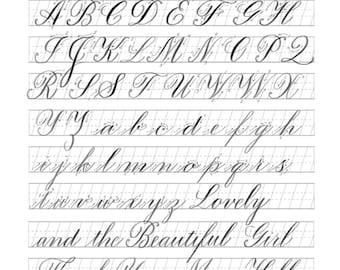 A B C D E F G H
I J K L M N O P Q
R S T U V W X
Y Z a b c d e f g h
i j k l m n o p q r s
t u v w x y z Lovely
and the Beautiful Girl